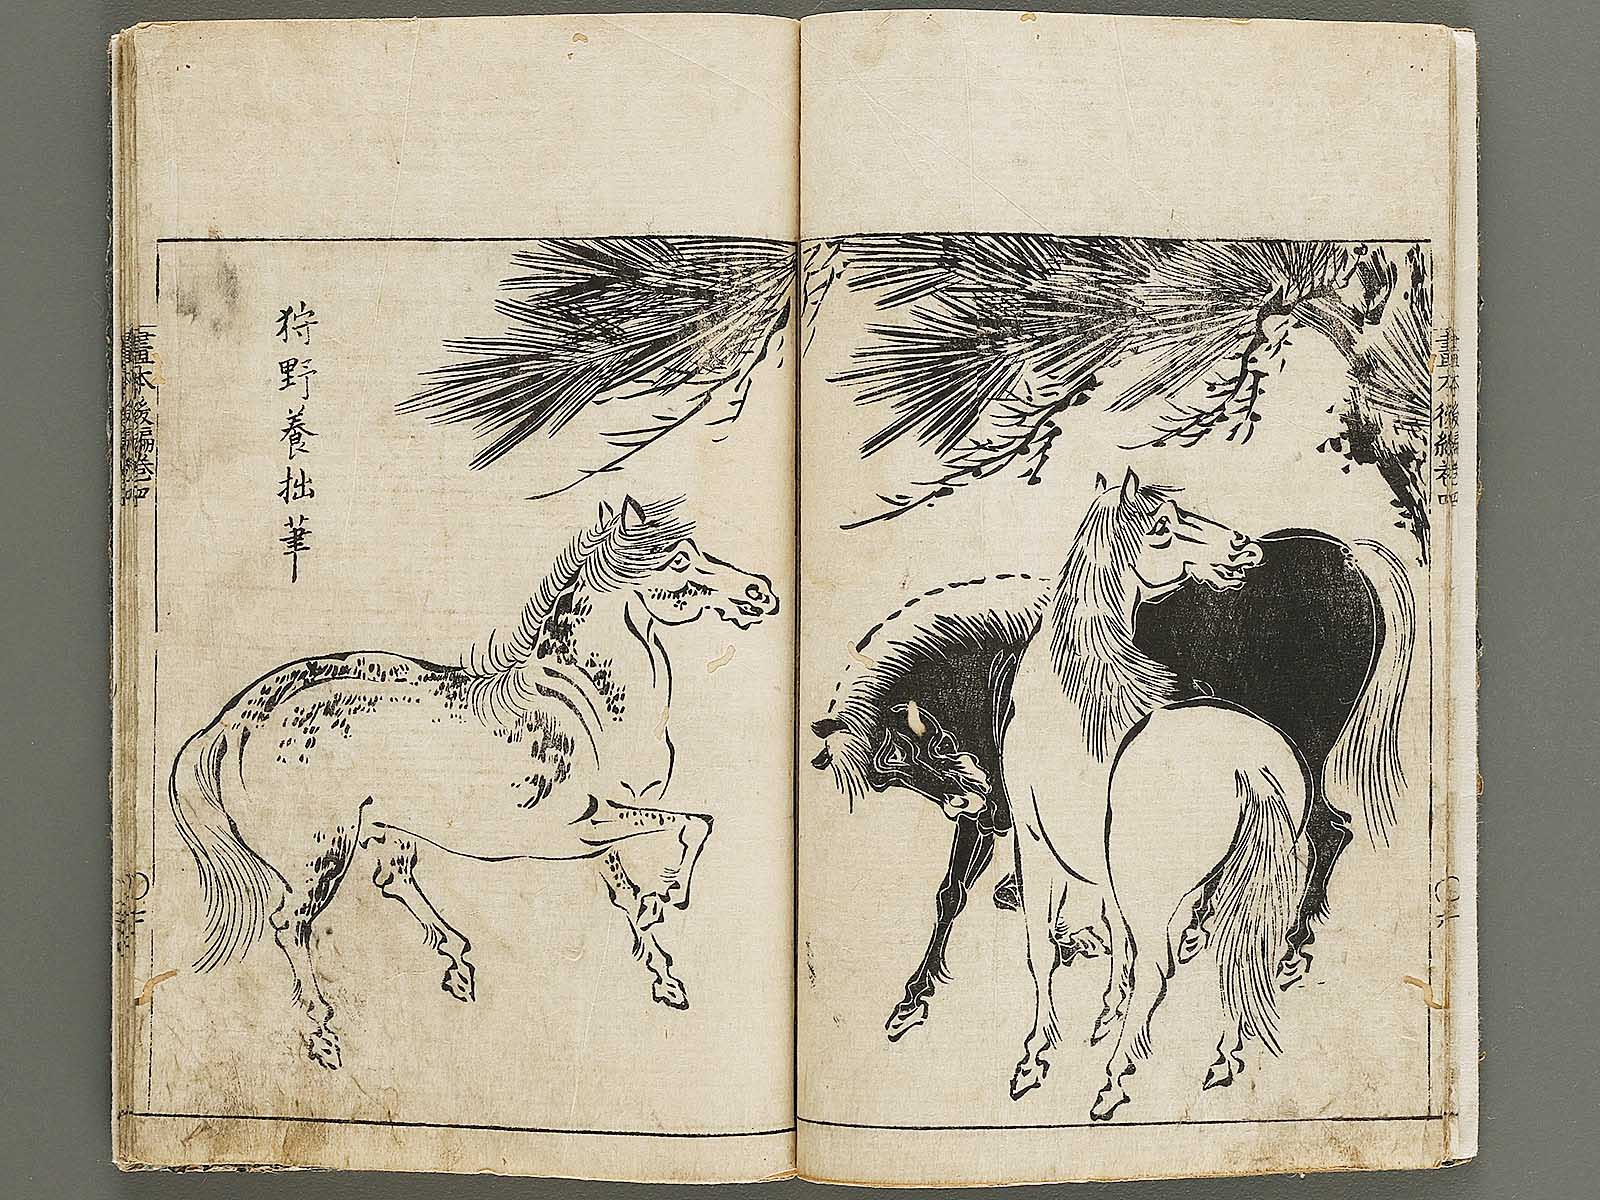 畫本後編卷四
狩野養拙筆
畫本後編卷四